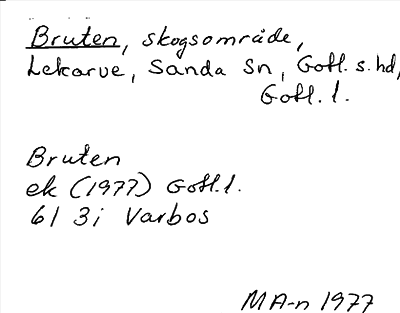 Bruten, skogsområde,
Lekarve, Sanda Sn, Gotl. s. hd,
Gotl. l.
Bruten
ek (1977) Gotl. l.
6I 3i Varbos
MA-n 1977